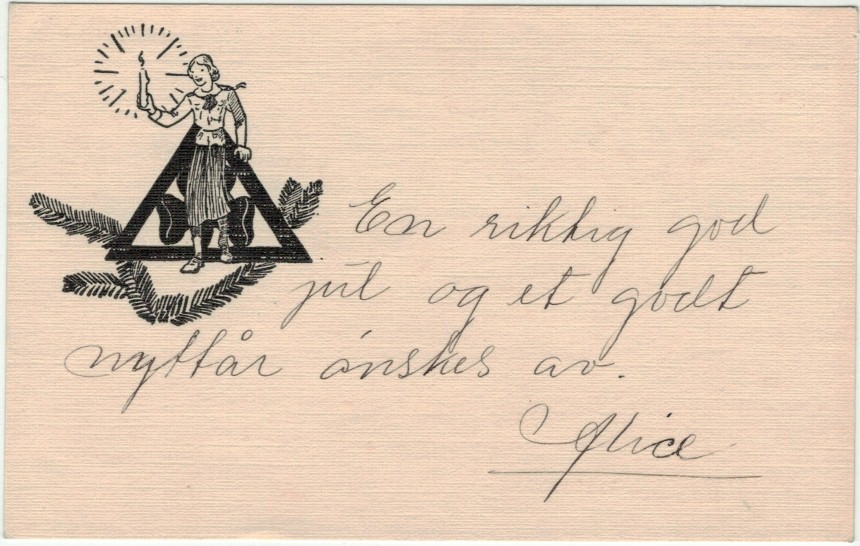 En riktig god
jul og et godt
nyttår ønskes av.
Alice